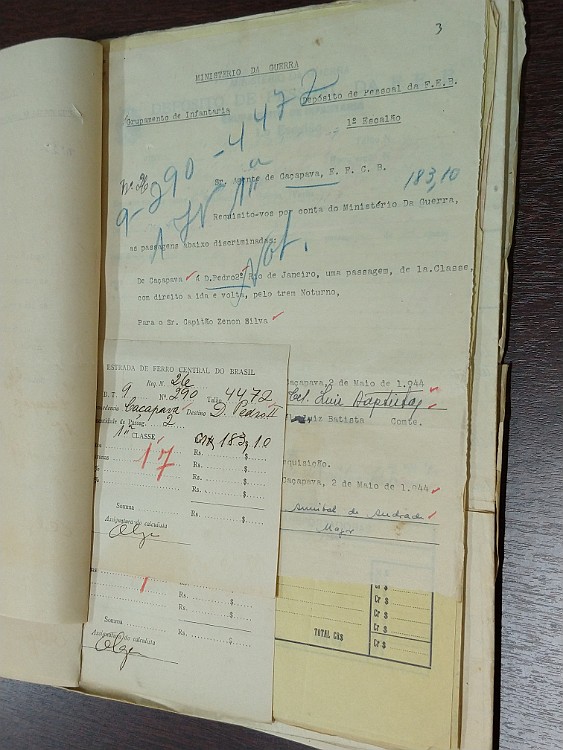 3
MINISTERIO DA GUERRA
Grupamento de Infantaria
Depósito de Pessoal da F.E.B.
1º Escalão
9-290-4472
Nº 26
Sr. Agente de Caçapava, E. F. C. B.
183,10
Requisito-vos por conta do Ministério Da Guerra,
as passagens abaixo discriminadas:
De Caçapava á D.Pedro2º/Rio de Janeiro, uma passagem, de 1a.Classe,
com direito a ida e volta, pelo trem Noturno,
Para o Sr. Capitão Zenon Silva
Caçapava, 2 de Maio de 1.944
Cel. Luiz Baptista
Luiz Batista Comte.
quisição.
Caçapava, 2 de Maio de 1.944
Annibal de Andrade
Major
ESTRADA DE FERRO CENTRAL DO BRASIL
Req. N. 26
D. T. 9 Nº 290 Talão 4472
Caçapava Destino D. Pedro II
de Passag. 2
1ª CLASSE
Cr$ 183,10
17
Rs. $
Rs. $
Rs. $
Rs. $
Somma Rs. $
Assignatura do calculista
Rs. $
Rs. $
Rs. $
Somma Rs. $
Assignatura do calculista
Cr $
Cr $
Cr $
Cr $
TOTAL CR$
Cr $